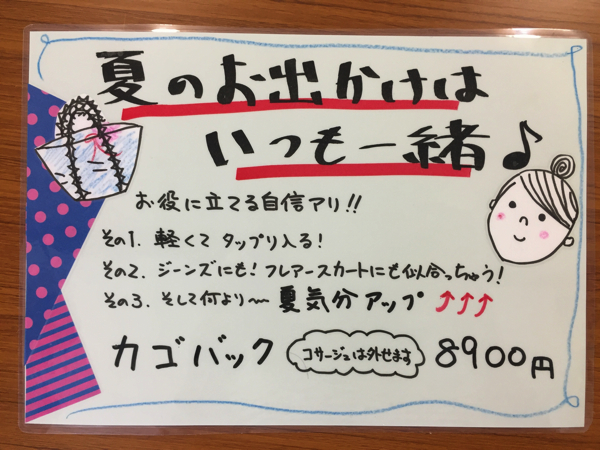 夏のお出かけは
いつも一緒♪
お役に立てる自信アリ!!
その1. 軽くて タップリ入る!
その2. ジーンズにも! フレアースカートにも似合っちゃう!
その3. そして何より〜 夏気分アップ ↑↑↑
カゴバック コサージュは外せます 8900円